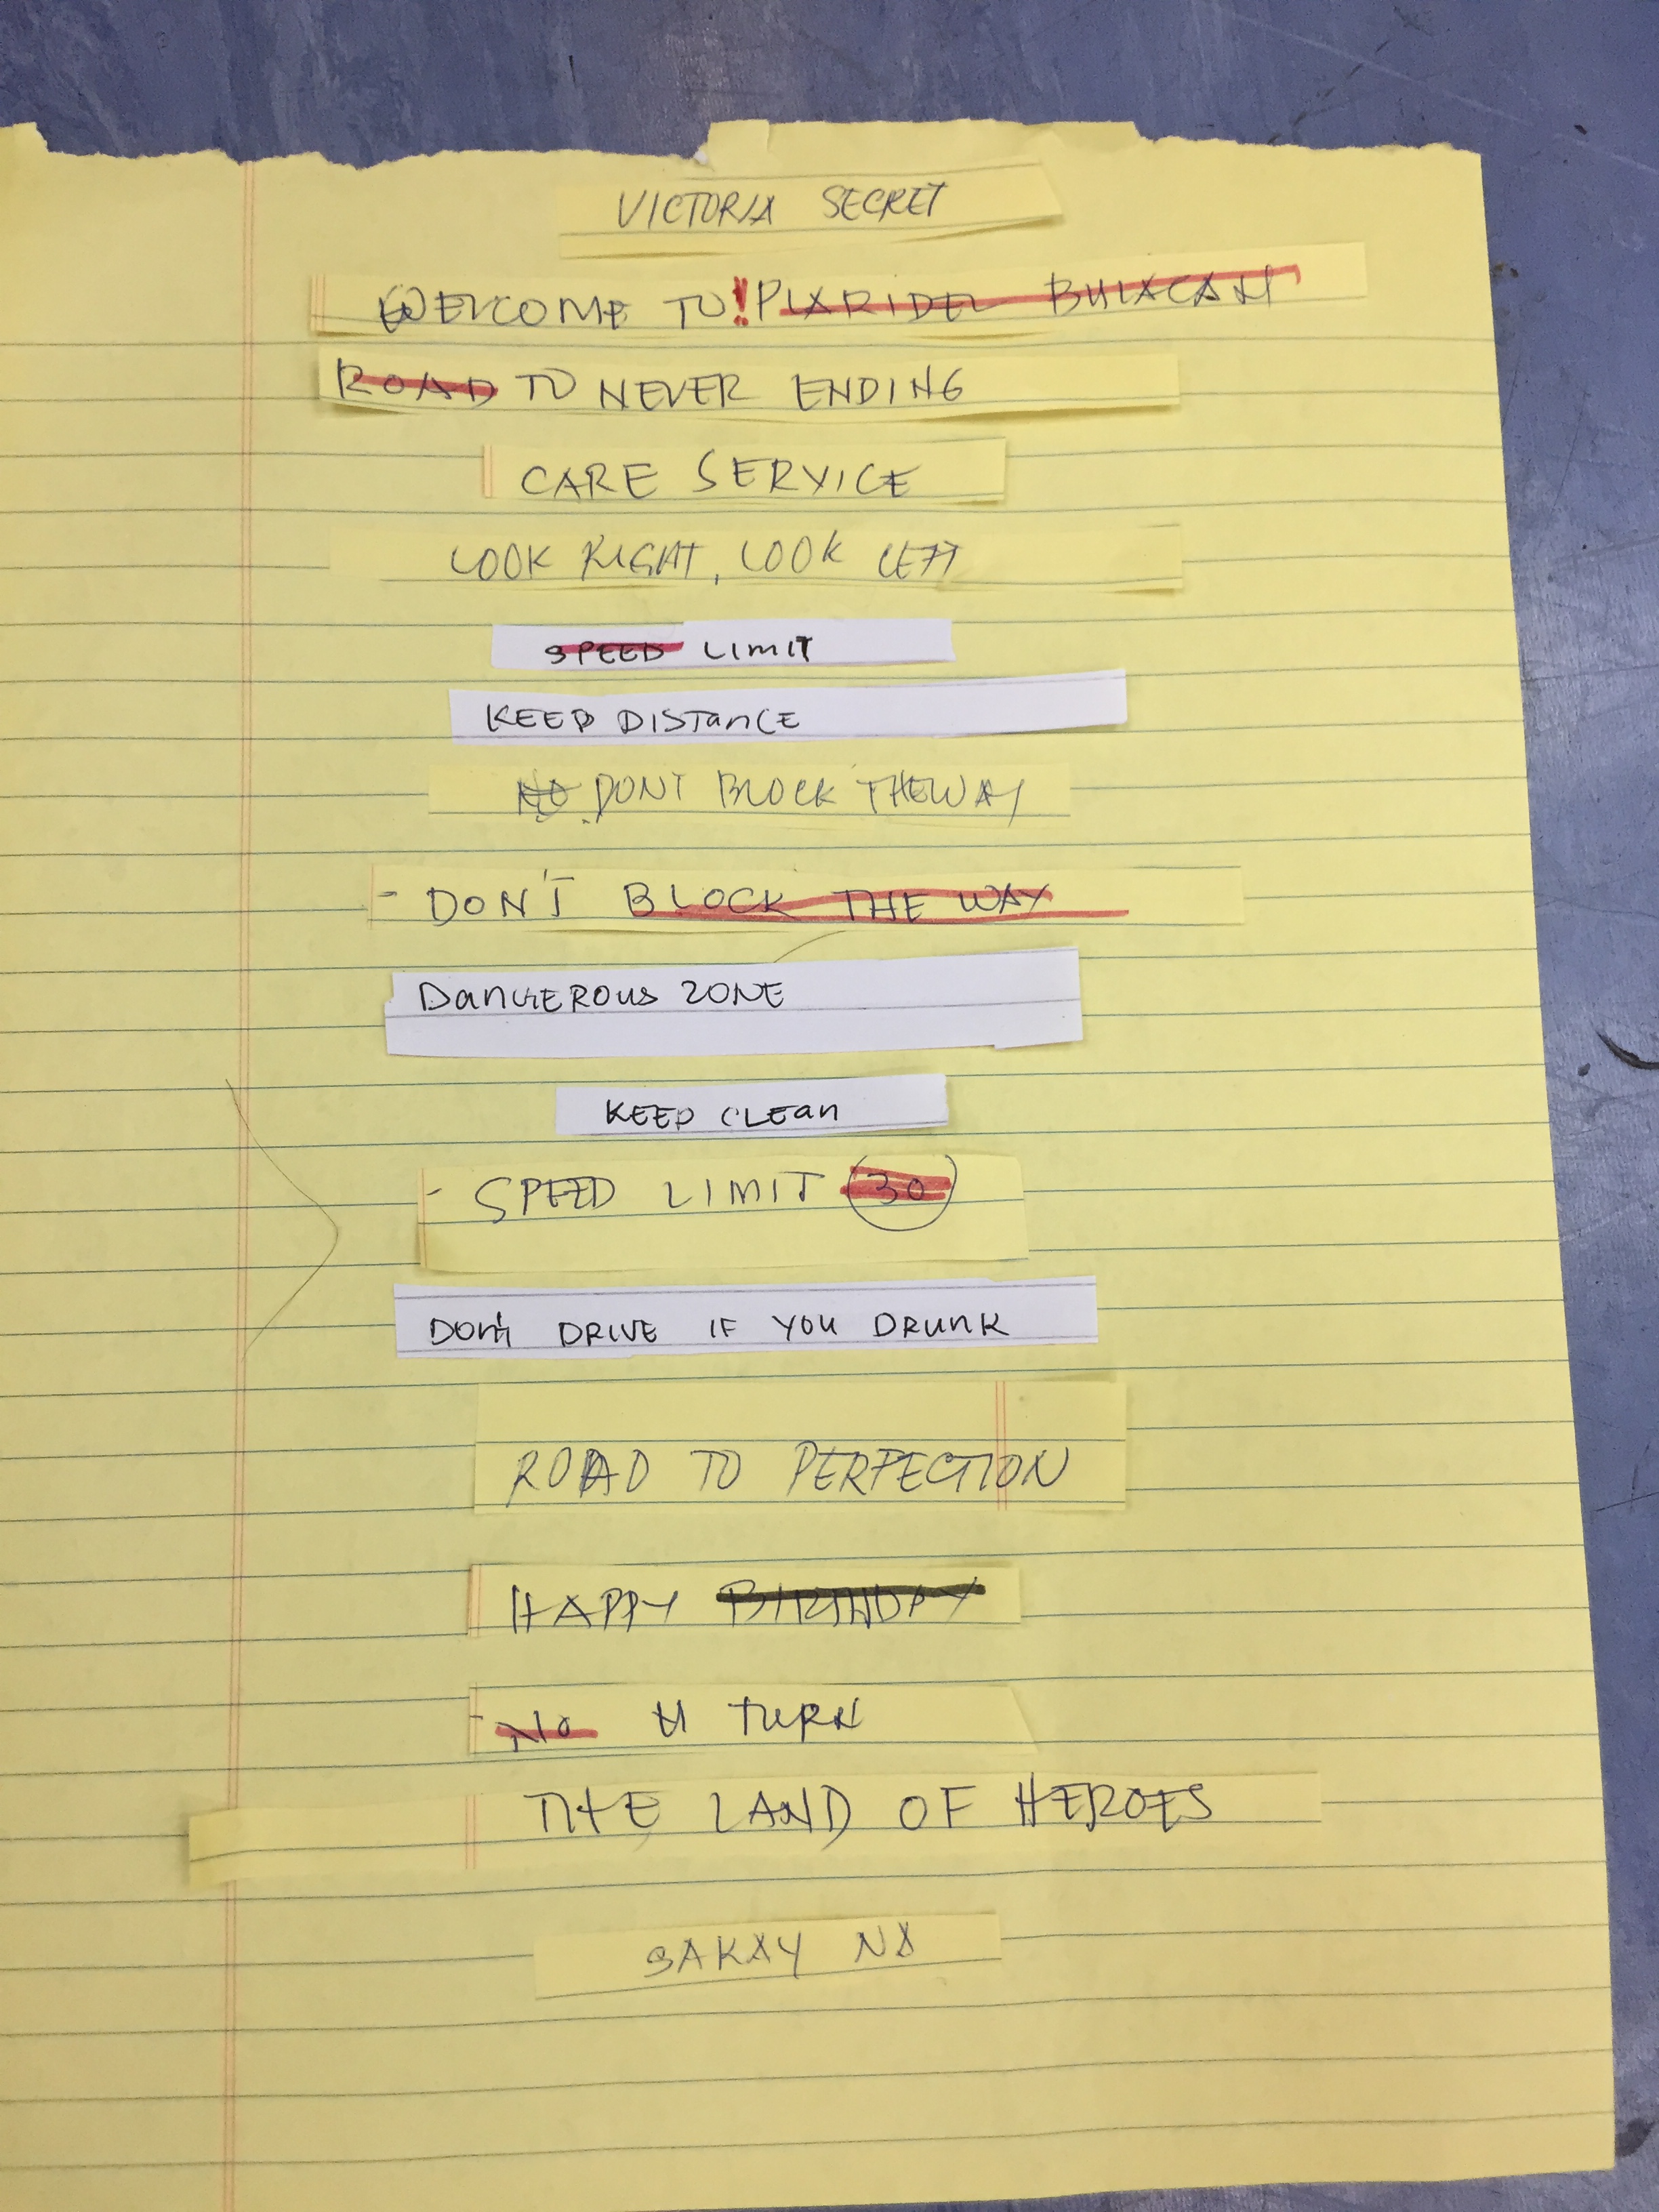 VICTORIA SECRET
WELCOME TO! PLARIDEL BULACAN
ROAD TO NEVER ENDING
CARE SERVICE
LOOK RIGHT, LOOK LEFT
SPEED LIMIT
KEEP DISTANCE
NO DONT BLOCK THE WAY
- DON'T BLOCK THE WAY
DANGEROUS ZONE
KEEP CLEAN
- SPEED LIMIT 30
DON'T DRIVE IF YOU DRUNK
ROAD TO PERFECTION
HAPPY BIRTHDAY
- NO U TURN
THE LAND OF HEROES
SAKAY NA